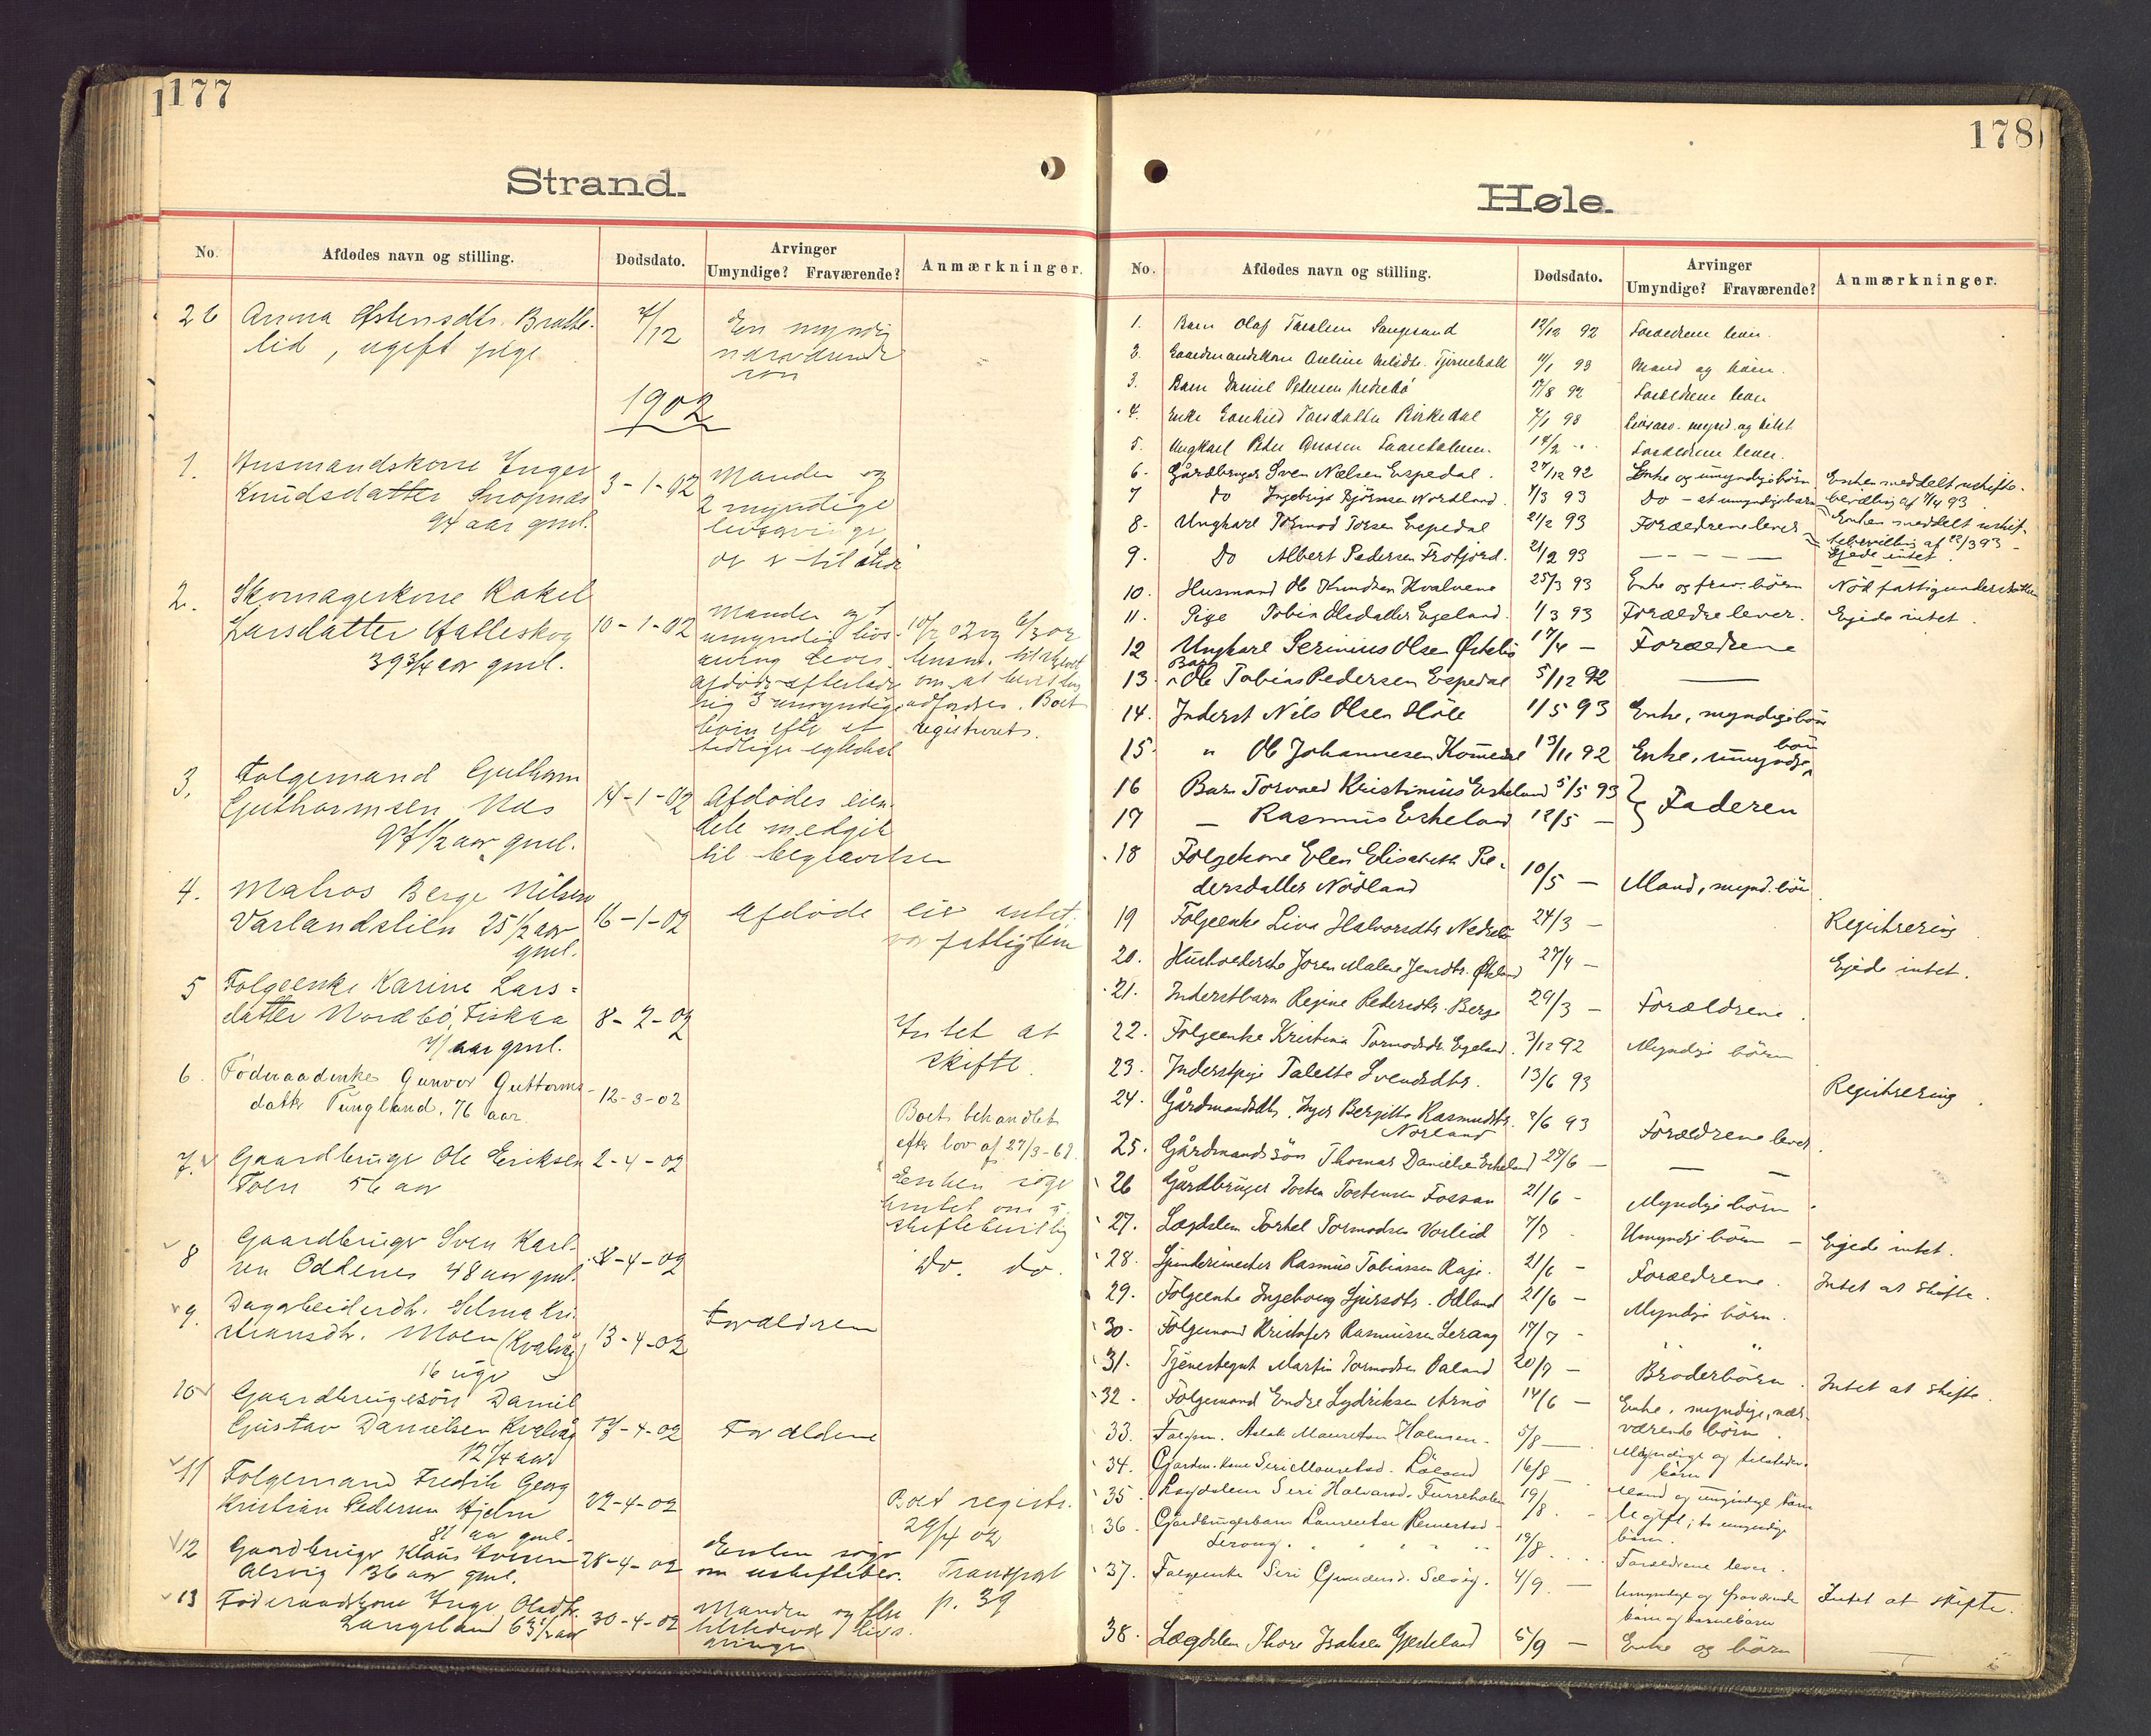 177
Strand.
No. Afdødes navn og stilling. Dødsdato. Arvinger Umyndige? Fraværende? Anmærkninger.
26 Anna Østensdtr. Bratte-
lid, ugift pige
4/12
En myndig
nærværende
søn
1902
1. Husmandskone Inger
Knudsdatter Snopnæs
94 aar gml.
3-1-02
Manden og
2 myndige
livsarvinge
2. Skomagerkone Rakel
Larsdatter Halleskog
39 3/4 aar gml.
10-1-02
Manden og 1
umyndig livs-
arving lever.
afdøde efterlader
sig 3 umyndige
børn efter et
tidligere egteskab
om at bevilling
udfordres. Boet
registreret.
3. Folgemand Guthorm
Guthormsen Næs
14-1-02
Afdødes eien-
dele medgik
til begravelsen
4. Matros Berge Nilsen
Varlandslien 25 1/2 aar
gml.
16-1-02
Afdøde eier intet.
var fattiglem
5 Folgeenke Karine Lars-
datter Nordbö, Fiskaa
71 aar gml.
8-2-02
Intet at
skifte.
6. Föderaadenke Gunvor Guttorms-
datter Tungland. 76 aar.
12-3-02
Boet behandlet
efter lov af 27/3-69.
7. Gaardbruger Ole Eriksen
Foen 56 aar
2-4-02
Enken søger
Amtet om u-
skiftebevillig
8 Gaardbruger Sven Karl-
sen Oddenes 48 aar gml.
8-4-02
do. do.
9. Dagarbeiderdtr. Selma Kri-
stiansdtr. Moen (Kvalvåg)
16 uger
13-4-02
Forældrene
10 Gaardbrugersön Daniel
Gustav Danielsen Kvalvåg
12 1/4 aar
17-4-02
Forældrene
11 Folgemand Fredrik Georg
Kristian Pedersen Hjelm
81 aar gml.
22-4-02
Boet registr.
29/4 02
12 Gaardbruger Klaus Iversen
Alsvig 36 aar gml.
28-4-02
Enken søger
om uskiftebev.
Transport
p. 39
13 Föderaadskone Inger Olsdtr.
Langeland 63 1/2 aar
30-4-02
Manden og flere
tilstedevær. livs-
arvinger
178
Høle.
No. Afdødes navn og stilling. Dødsdato. Arvinger Umyndige? Fraværende? Anmærkninger.
1. Barn Olaf Taralsen Sangesand 12/12 92 Forældrene lever.
2. Gaardmandskone Oseline 11/1 93 Mand og børn.
3. Barn Daniel Pedersen Nedrebö 17/8 92 Forældrene lever
4. Enke Gunhild Torsdatter Birkedal 7/1 93 Livsarv. mynd. og tilst.
5. Ungkarl Peder 14/2 Forældrene lever.
6. Gårdbruger Sven Nielsen Espedal. 27/12 92 Enke og umyndige börn Enken meddelt uskifte-
bevilling af 7/4 93
7 do Ingebrigt Bjørnsen Nordland. 7/3 93 do - et umyndigt barn Enken meddelt uskif-
tebevilling af 22/3 93
8. Ungkarl Tormod Torsen Espedal 21/2 93 Forældrene lever
9. do Albert Pedersen Frafjord. 21/2 93 — — — — — Ejede intet.
10. Husmand Ole Knudsen Kvalvene 25/3 93 Enke og frav. børn Nöd fattigunderstøttelse
11. Pige Tobia Olsdatter Egeland. 1/3 93 Forældre lever. Ejede intet.
12 Ungkarl Serinius Olsen Østebö 17/4 - Forældrene
13. Barn Ole Tobias Pedersen Espedal 5/12 92 —
14. Inderst Nils Olsen Höle 1/5 93 Enke, myndige börn
15. " Ole Johannesen Komedal 13/11 92 Enke, umyndige börn
16 Barn Torvald Kristinius Eskeland 5/5 93 } Faderen
17 — Rasmus Eskeland 12/5 —
18 Folgekone Elen Elisabeth Pe-
dersdatter Nödland 10/5 — Mand, mynd. börn
19 Folgeenke Liva Halvorsdtr. Nedrebö 24/3 — Registrering
20. Husholderske Joren Malene Jensdtr. Økland 27/4 — Ejede intet.
21. Inderstbarn Regine Pedersdtr. Berge 29/3 — Forældrene.
22. Folgeenke Kristina Tormodsdtr. Egeland. 3/12 92 Myndige börn
23. Inderstpige Talette Svendsdtr. 13/6 93 Registrering.
24. Gårdmandsdtr. Inger Bergitte Rasmusdtr.
Norland 2/6 93 Forældrene lever.
25. Gårdmandssön Thomas Danielsen Eskeland 27/6 — — —
26 Gårdbruger Tosten Tostensen Fossan 21/6 - Myndige börn.
27. Lægdslem Torkel Tormodsen Vorlid 7/7 - Umyndige börn - Ejede intet.
28. Rasmus Tobiassen Rage. 21/6 - Forældrene. Intet at skifte.
29. Folgeenke Ingeborg Sjursdtr. Ödland 21/6 - Myndige börn.
30. Folgemand Kristofer Rasmussen Lerang 17/7 - " "
31. Tjenestegut Martin Tormodsen Paland 20/7 — Broderbörn. Intet at skifte.
32. Folgemand Endre Lydriksen Arnö 14/6 — Enke, myndige, nær-
værende børn.
33. Folgem. Aslak Mauretsen Holmen. 5/8 — Myndige og tilstedev.
börn
34. Gardm. kone Seri Mauretsd. Löland 16/8 — Mand og umyndige börn
35 Lægdslem Seri Halvorsd. Furreholen 19/8. - Ugift; to umyndige
börn.
36. Gårdbrugerbarn Laurentse Reinertsd.
Lerang. 19/8. ... Forældrene lever.
37. Folgeenke Seri Gundersd. Sævig. 4/9. — Umyndige og fraværende
barn og barnebarn Intet at skifte.
38. Lægdslem Thore Isaksen Gjeskeland 5/9 — Enke og börn —